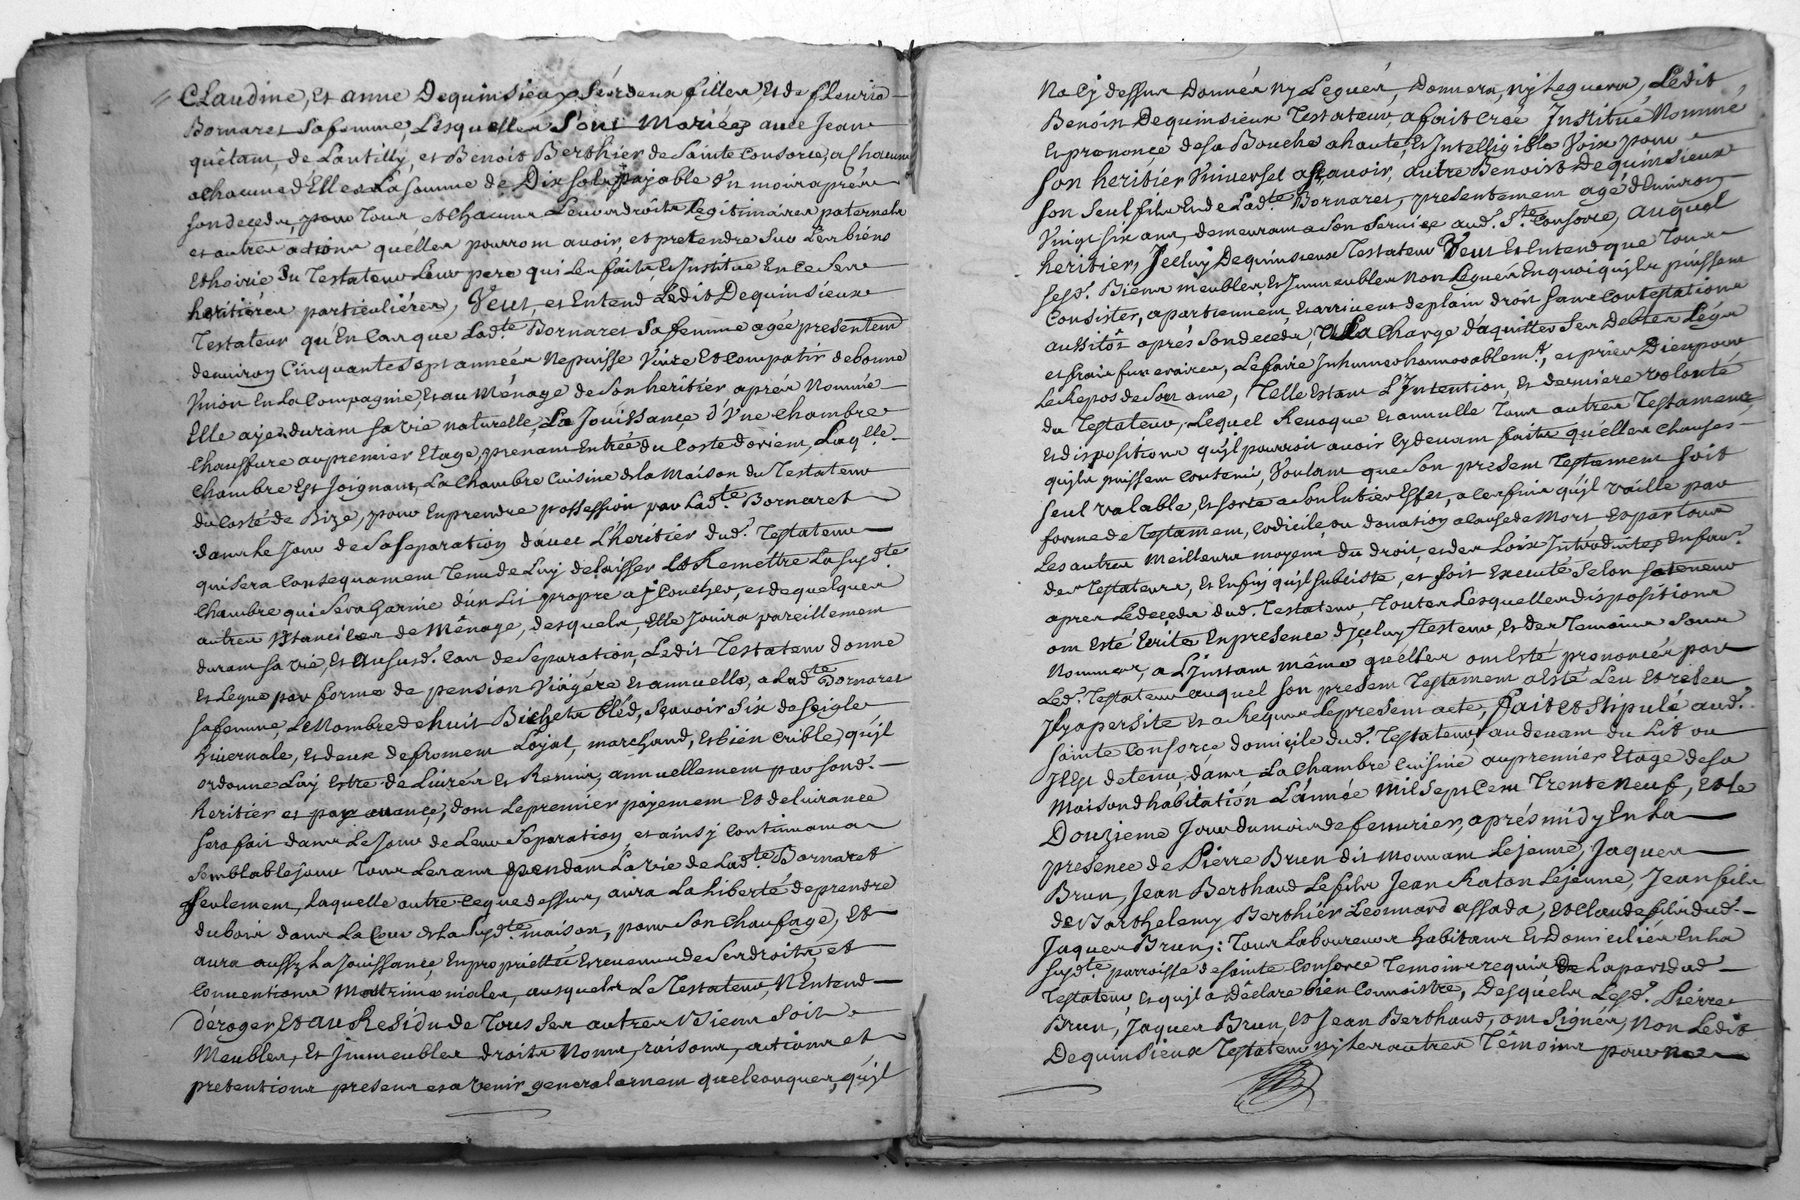 Claudine, et anne Dequinsieux sesdeux filles, et de fleurie
Bornaret Safemme, Lesquelles Sont Mariées avec Jean
quétant, de Lentilly, et Benoit Berthier de Sainte Consorce, a chacune
achacune d'Elles La somme de Dix sols payable un mois aprés
son decedes, pour Tous et chacuns Leurs droits Legitimaires paternels
et autres actions quélles pourront avoir, et pretendre Sur Les biens
Ethoirie du Testateur Leur pere qui Les fait, et Institue En ce Ses
heritiéres particuliéres, Veut, et Entend Ledit Dequinsieux
Testateur qu'En Cas que Lad.te Bornaret Saffemme agée presentem.t
denviron Cinquante Sept années Nepuisse Vivre Et Compatir debonne
Union En La Compagnie, Et au Ménage de Son heritier aprés Nommé
Elle aye durant sa vie naturelle, La Jouissance d'Une Chambre
Chauffure au premier Etage, prenant Entrée du Costé dorient, Laq.lle
Chambre Est Joignant, La Chambre Cuisine de la Maison du Testateur
du Costé de Bize, pour En prendre possession par Lad.te Bornaret
dans Le Jour de Sa Separation d'avec L'héritier dud. Testateur
qui Sera Consequament Tenu de Luy delaisser Et Remettre La susd.te
Chambre qui Sera Garnie d'un Lit propre a y Coucher, et de quelques
autres Ustancilles de Ménage, desquels, Elle Jouira pareillement
durant sa vie, Et Aususd. Cas de Separation, Ledit Testateur donne
Et Legue par forme de pension Viagére Et annuelle, a Lad.te Bornaret
safemme, Le Nombre de huit Bichets bléd, Sçavoir Six de Seigle
hivernale, et deux de froment Loyal, marchand, Et bien Crible, qu'il
ordonne Luy Estre de Livrés Et Remis, annuellement par Sond.
heritier et par avance, dont Le premier payement Et delivrance
Sera fait dans Le Jour de Leur Séparation, et ainsy Continuera a
Semblable Jour Tous Les ans pendant La vie de Lad.te Bornaret
Seulement, Laquelle outre ce que dessus, aura La Liberté de prendre
du bois dans La Cour de La Susd.te maison, pour Son Chaufage, Et
aura aussy La Jouissance, En proprieté Et revenus de Ses droits, et
Conventions Matrimonialles, ausquels Le Testateur, N'Entend
déroger, Et au Residu de Tous Ses autres Biens Soit
Meubles, Et Immeubles droits Noms, raisons, actions et
pretentions presens et a venir generalement quelconques, qu'il
Na Cy dessus Donnés Ny Legués, Donnera, Ny Leguera, Ledit
Benoit Dequinsieux Testateur, a fait Crée Institué Nommé
Et prononcé de Sa Bouche a haute, Et Intelligible Voix pour
Son heritier Universel ascavoir, autre Benoist Dequinsieux
Son Seul fils Et de Lad.te Bornaret, presentement agé d'Environ
Vingt six ans, demeurant a Son Service aud. S.te Consorce, auquel
heritier, Iceluy Dequinsieux Testateur Veut Et Entend que Tous
Sesd. Biens meubles, Et Immeubles Non Legués En quoi qu'ils puissent
Consister, apartiennent, Et arrivent de plain droit Sans Contestations
aussitôt aprés Son decedes, A La Charge d'aquitter Ses Dettes Légs
et frais funeraires, Le faire Inhumer honnorablem.t, et prier Dieu pour
Le Repos de Son ame, Telle Estant L'Intention, Et derniere volonté
du Testateur, Lequel Revoque Et annulle Tous autres Testamens,
Et dispositions qu'il pourroit avoir Cy devant faits quélles Clauses
qu'ils puissent Contenir, Voulant que Son present Testament Soit
Seul valable, Et Sorte a Son Entier Effet, a Ces fins qu'il vaille par
forme de Testament, Codicile, ou donation a Cause de Mort, Et par Tous
Les autres Meilleurs moyens du droit, et des Loix Introduites En fav.r
des Testateurs, Et Enfin qu'il Subsiste, et Soit Executé Selon Sa teneur
apres Le decedes dud. Testateur, Toutes Lesquelles dispositions
ont Esté Ecrites En presence d'Iceluy Testateur, Et des Temoins Sous
Nommés, a L'instant même qu'elles ont Esté prononcées par
Led. Testateur auquel Son present Testament a Esté Leu Et releu
Il y a persité Et a Requis Le present acte, fait Et Stipulé aud.
Sainte Consorce domicile dud. Testateur, au devant du Lit ou
Il Est detenu, dans La Chambre Cuisine au premier Etage de Sa
Maison d'habitation L'année Mil Sept Cent Trente Neuf, Et Le
Douzieme Jour du mois de fevrier, aprés midy En La
presence de Pierre Brun dit Mournant Le jeune, Jaques
Brun, Jean Berthaud Le fils Jean Raton Lejeune, Jean fils
de Barthelemy Berthier Leonnard assada, Et Claude fils dud.
Jaques Brun; Tous Laboureurs habitans Et Domiciliés En La
Susd.te parroisse de Sainte Consorce Temoins requis de La part dud.
Testateur Et qu'il a Déclare bien Connoistre, Desquels Lesd. Pierre
Brun, Jaques Brun, et Jean Berthaud, ont Signés, Non Ledit
Dequinsieux Testateur, Ny Les autres Témoins pour ne